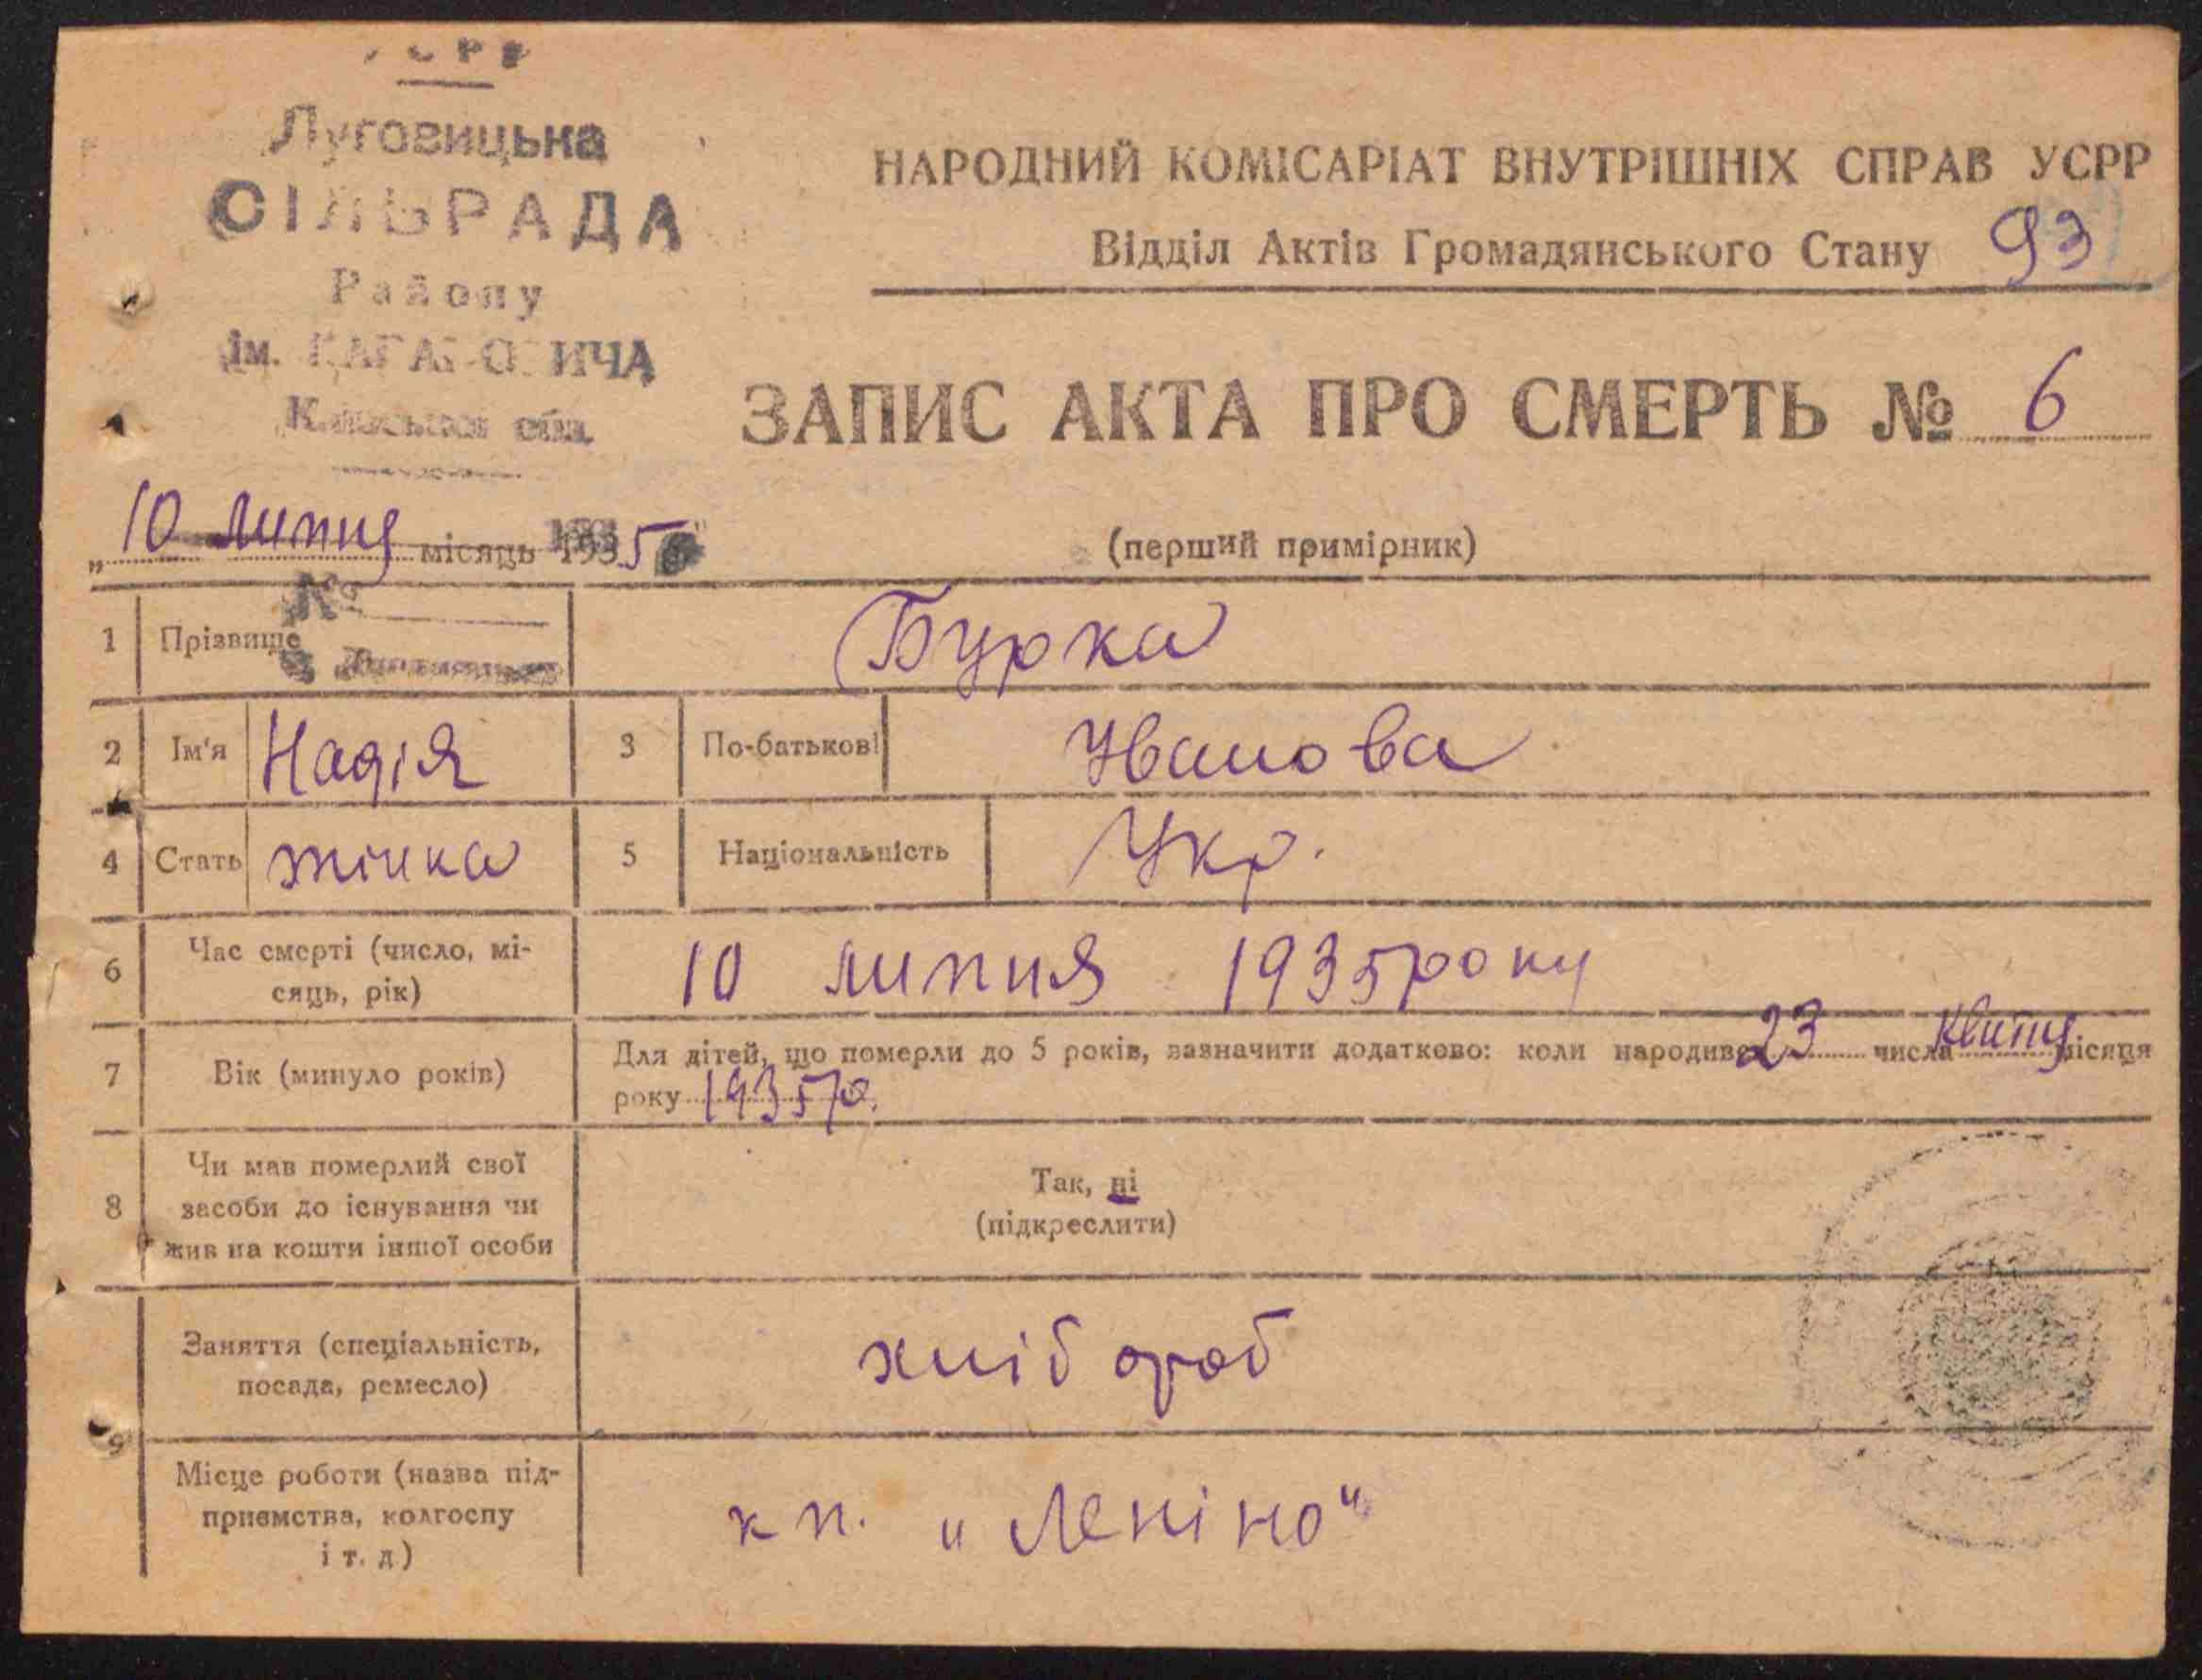 УСРР
Луговицька
СІЛЬРАДА
Району
ім. КАГАНОВИЧА
Київської обл.
НАРОДНИЙ КОМІСАРІАТ ВНУТРІШНІХ СПРАВ УСРР
Відділ Актів Громадянського Стану 93
ЗАПИС АКТА ПРО СМЕРТЬ № 6
„10 липня місяць 1935
(перший примірник)
№
1 Прізвище Бурка
2 Ім'я Надія 3 По-батькові Иванова
4 Стать жінка 5 Національність Укр.
6 Час смерті (число, мі-
сяць, рік) 10 липня 1935 року
7 Вік (минуло років) Для дітей, що померли до 5 років, зазначити додатково: коли народивс 23 числа квітня місяця
року 1935 р.
8 Чи мав померлий свої
засоби до існування чи
жив на кошти іншої особи
Так, ні
(підкреслити)
9 Заняття (спеціальність,
посада, ремесло) хлібороб
Місце роботи (назва під-
приємства, колгоспу
і т. д.) кп. „Леніно"